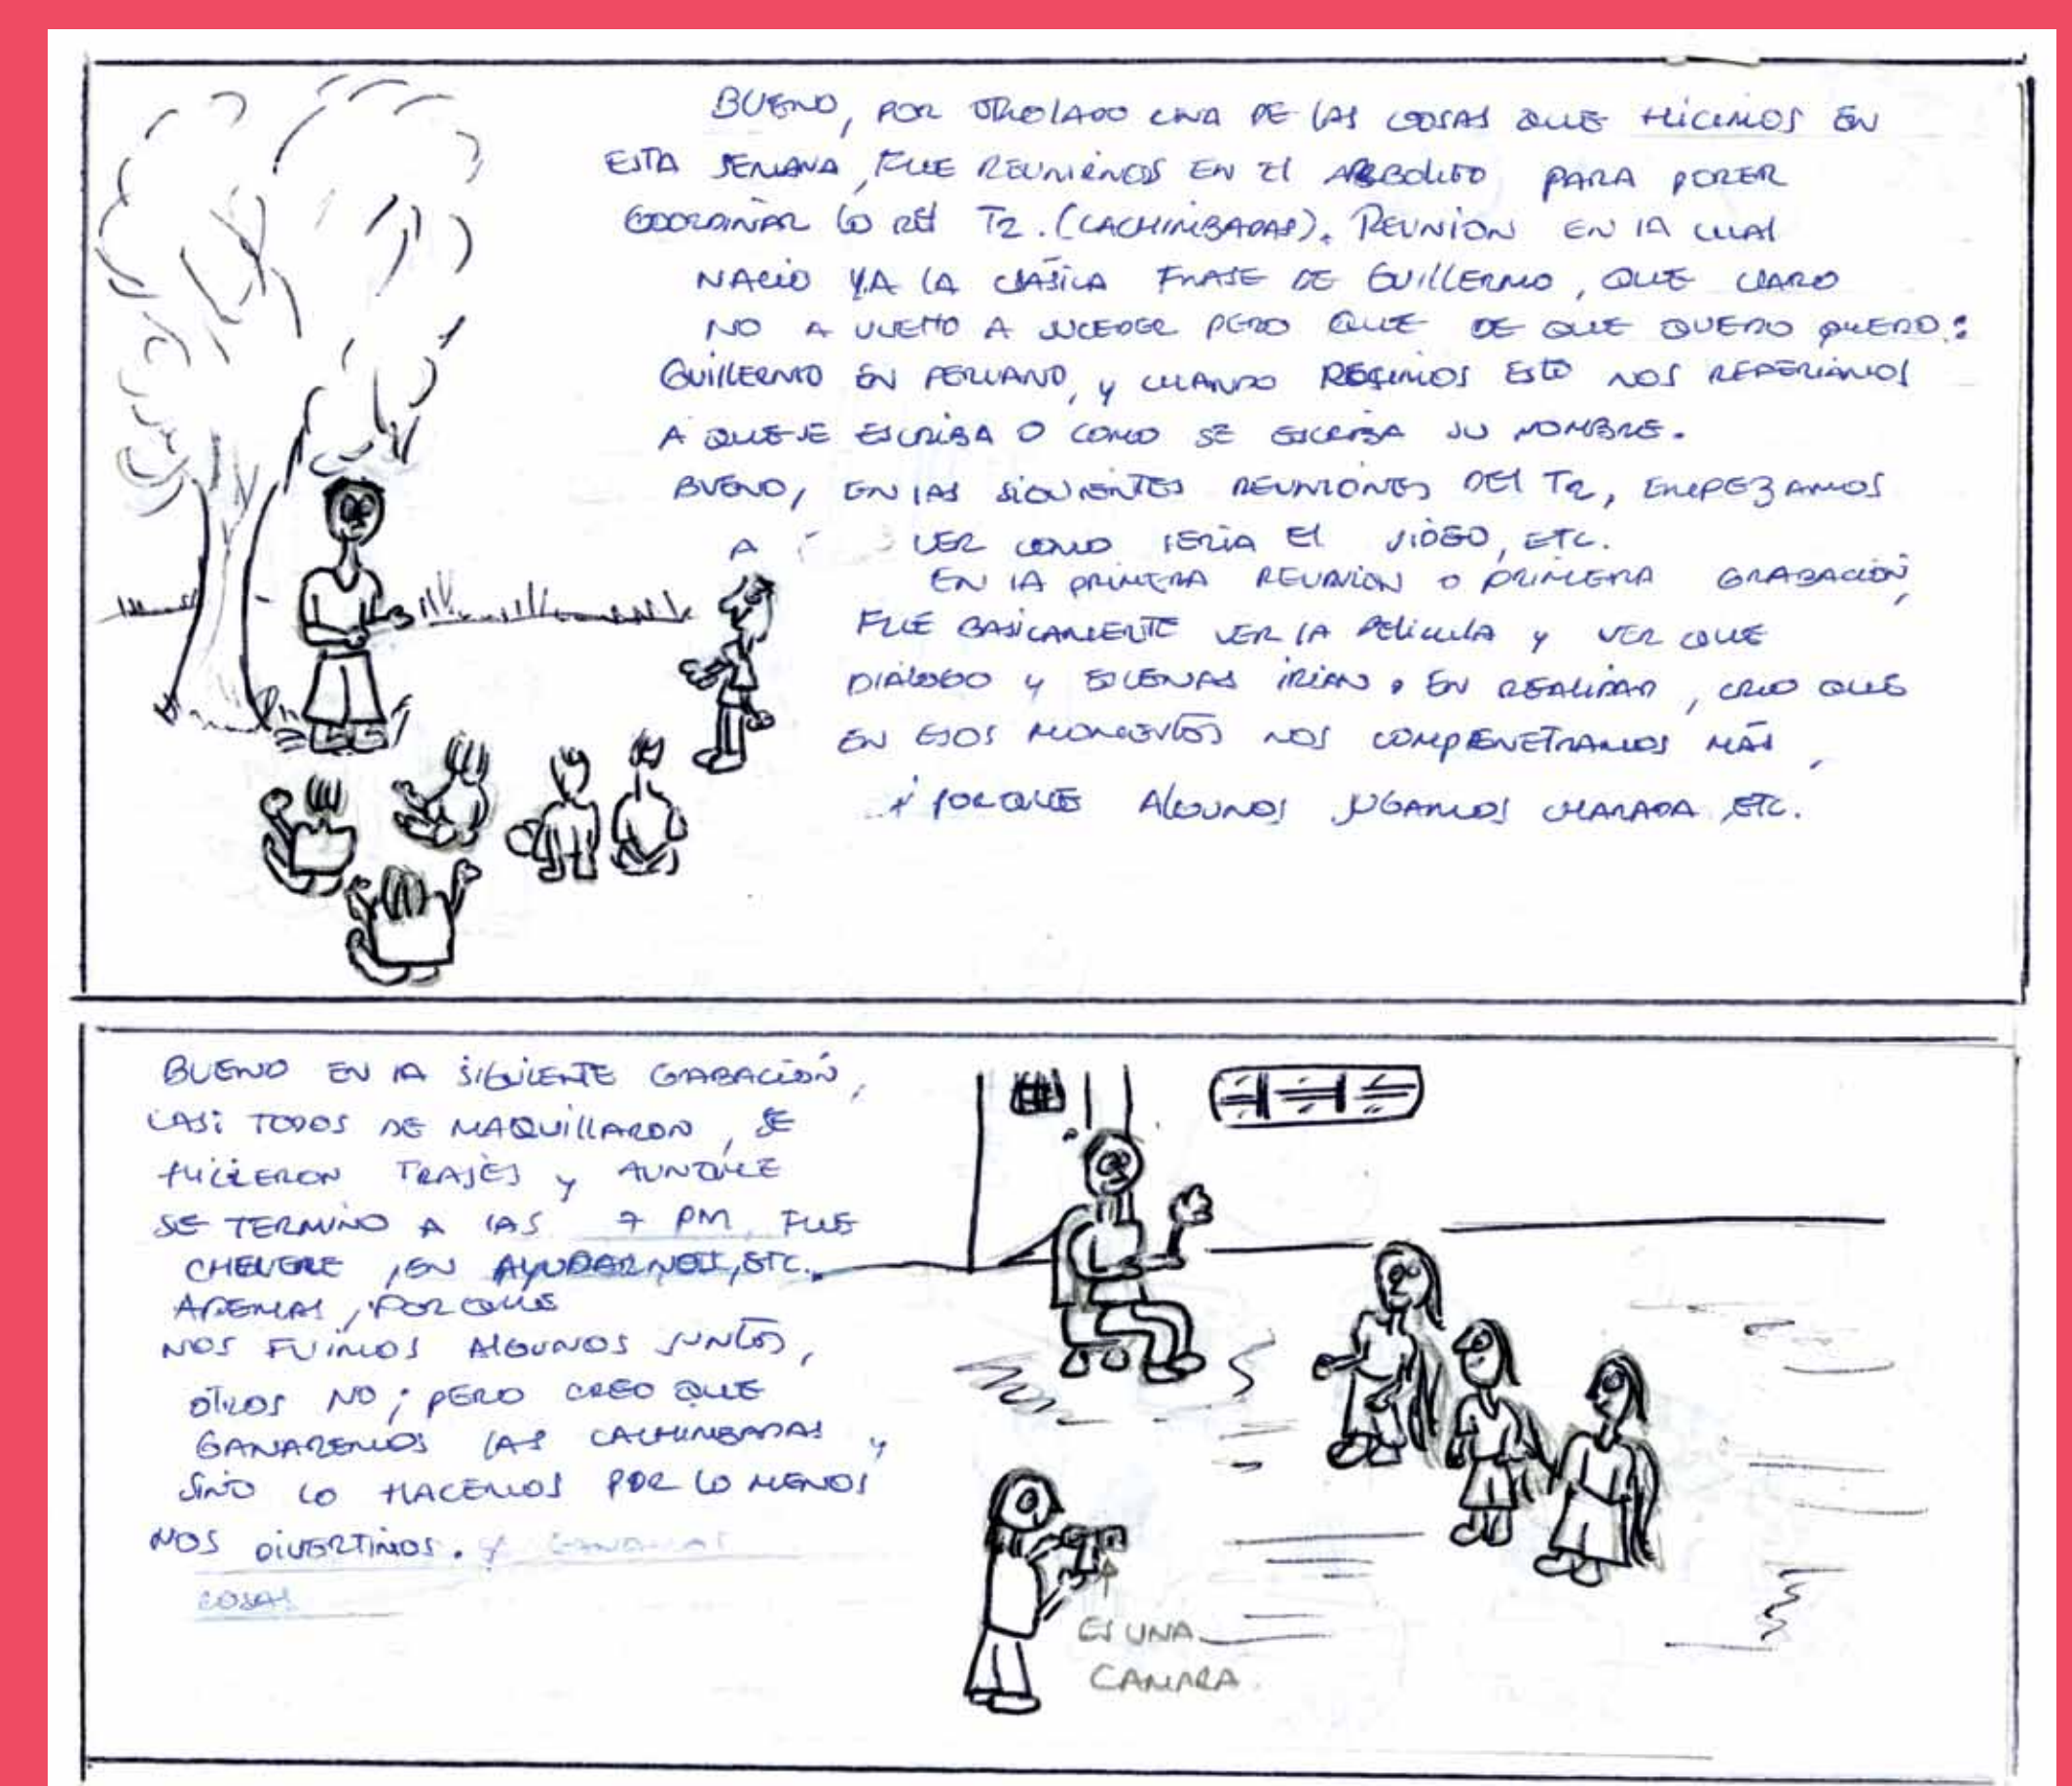 BUENO, POR OTROLADO UNA DE LAS COSAS QUE HICIMOS EN
ESTA SEMANA, FUE REUNIRNOS EN El ARBOLITO PARA PODER
COORDINAR LO DEl T2. (CACHIMBADAS). REUNION EN lA CUAl
NACIO YA LA CLÁSICA FRASE DE GUILLERMO, QUE CLARO
NO A VUELTO A SUCEDER PERO QUE DE QUE QUEDO QUEDO:
GUILLERMO EN PERUANO, y CUANDO DECIMOS ESTO NOS REFERIAMOS
A QUE SE ESCRIBA O COMO SE ESCRIBA SU NOMBRE.
BUENO, EN lAS SIGUIENTES REUNIONES DEl T2, EMPEZAMOS
A VER COMO SERIA El VIDEO, ETC.
EN lA PRIMERA REUNION O PRIMERA GRABACIÓN,
FUE BASICAMENTE VER lA PELICULA y VER QUE
DIALOGO y ESCENAS IRIAN. EN REALIDAD, CREO QUE
EN ESOS MOMENTOS NOS COMPENETRAMOS MÁS,
PORQUE ALGUNOS JUGAMOS CHARADA, ETC.
BUENO EN lA SIGUIENTE GRABACIÓN,
CASI TODOS SE MAQUILLARON, SE
HICIERON TRAJES y AUNQUE
SE TERMINO A lAS 7 PM, FUE
CHEVERE, EN AYUDARNOS, ETC.
ADEMAS, PORQUE
NOS FUIMOS ALGUNOS JUNTOS,
OTROS NO; PERO CREO QUE
GANAREMOS LAS CACHIMBADAS y
SINO LO HACEMOS POR LO MENOS
NOS DIVERTIMOS. y
COSAS
ES UNA
CAMARA.